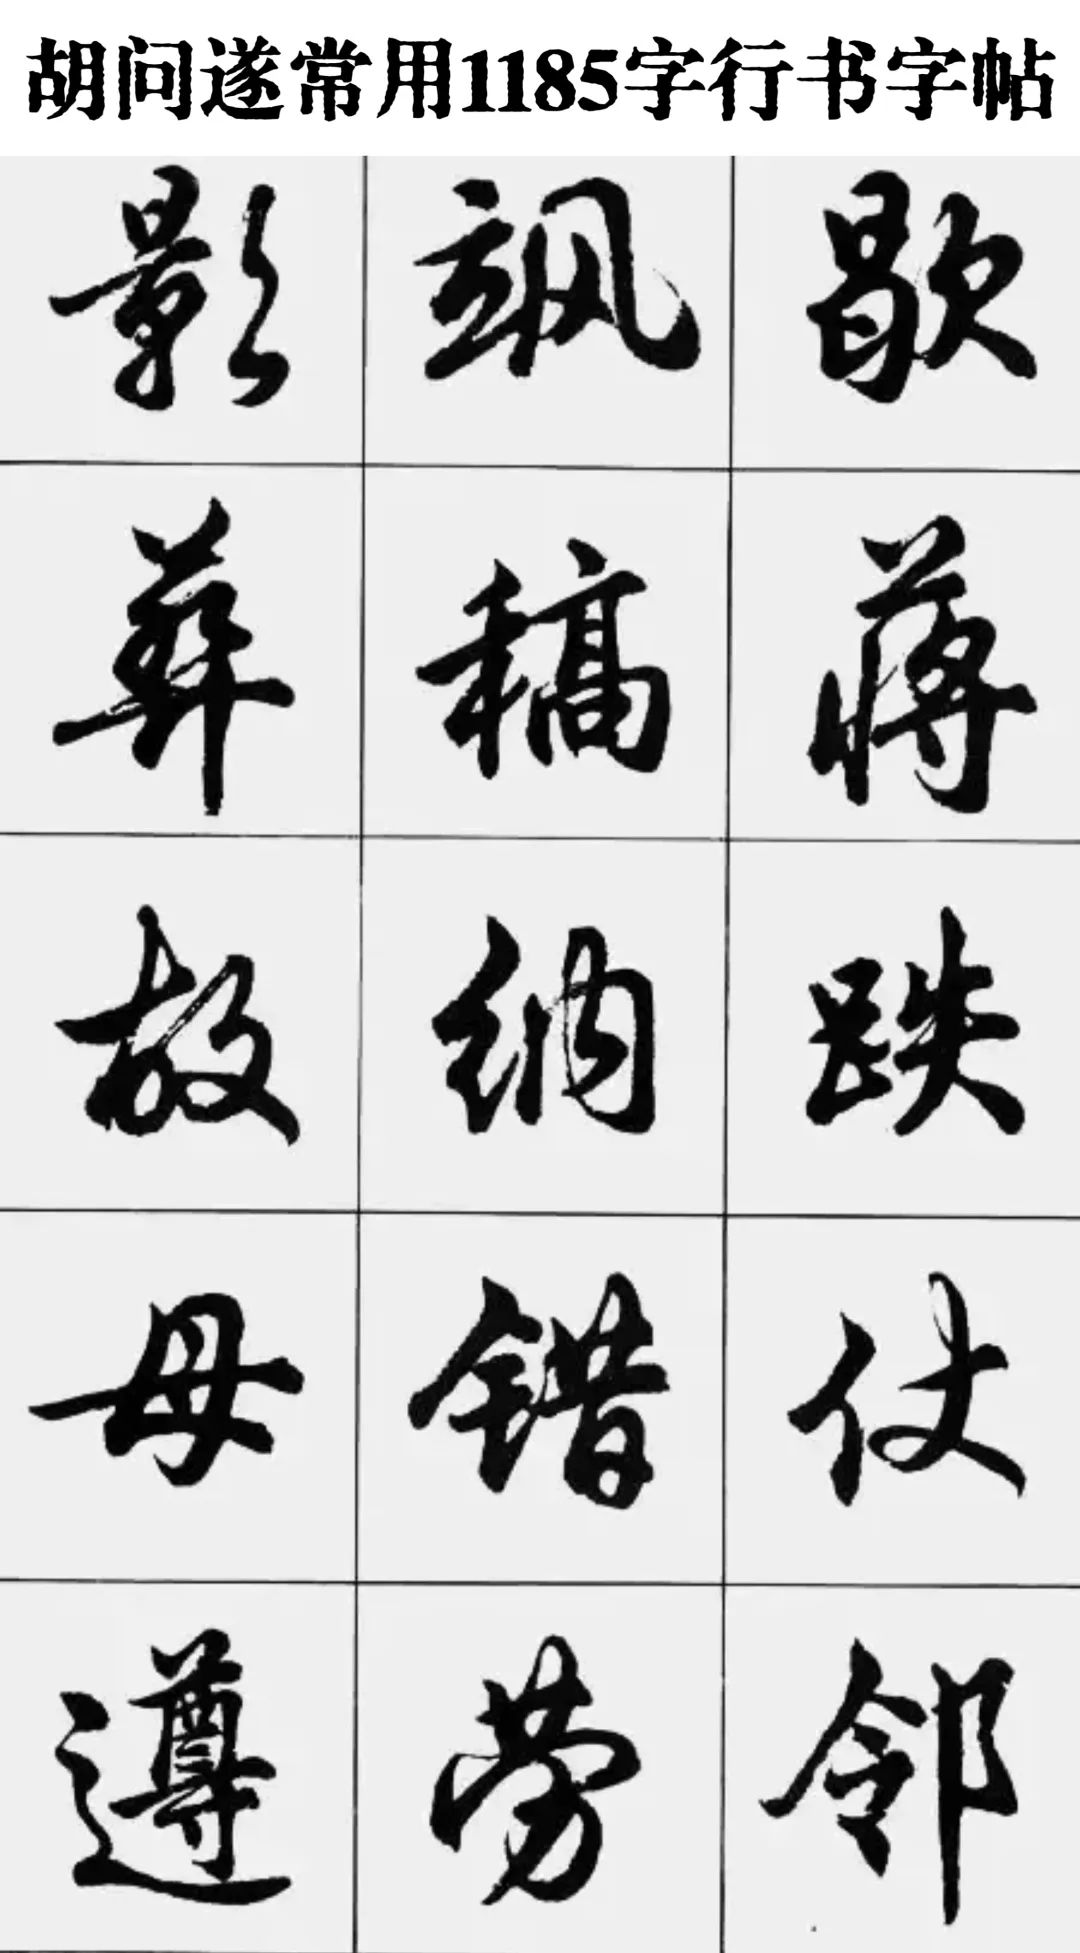 胡问遂常用1185字行书字帖
影飒歇
彝稿蒋
故纳跌
母错仗
遵劳邻